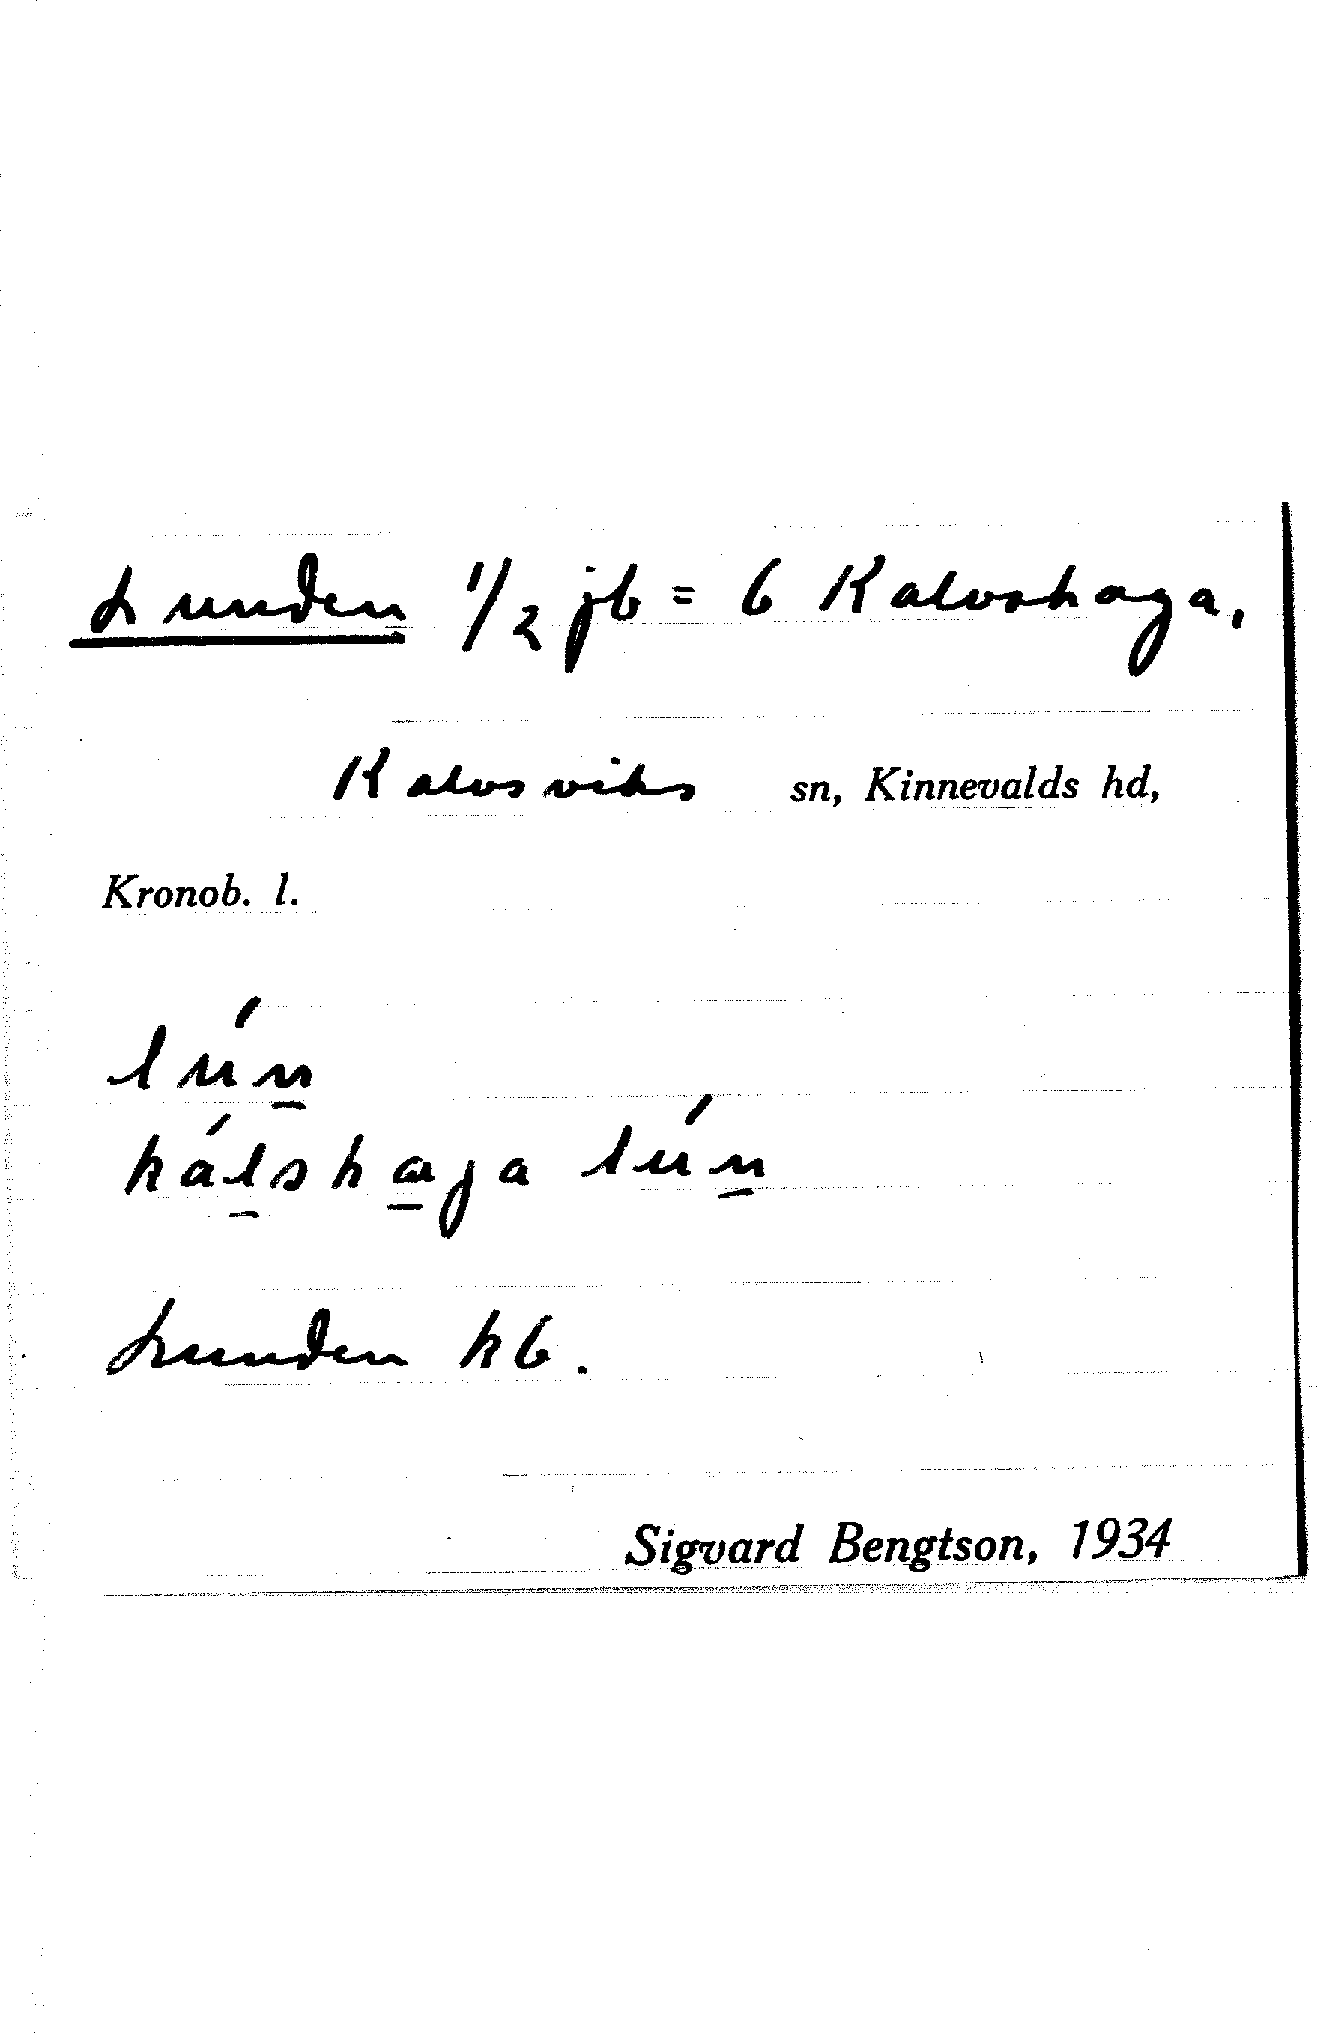 Lunden 1/2 jb = 6 Kalvshaga,
Kalvsviks sn, Kinnevalds hd,
Kronob. l.
lún̲
kál̲sha̲ga lún̲
Lunden kb.
Sigvard Bengtson, 1934